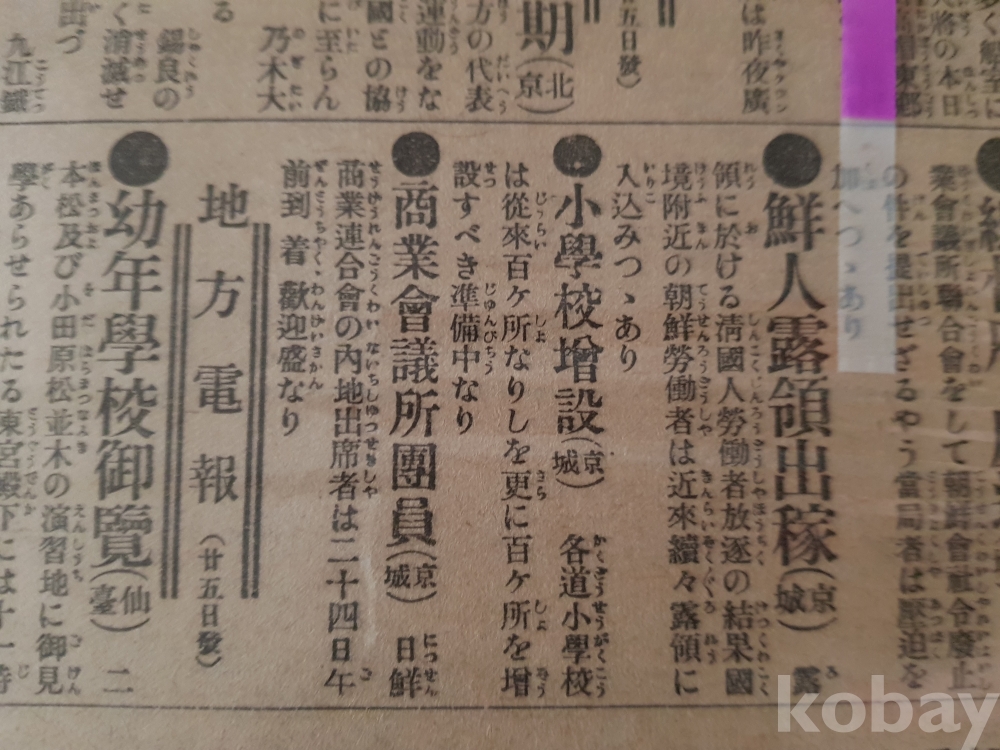 は昨夜廣
五日發)
期(北京)
方の代表
運動をな
國との協
に至らん
乃木大
る
錫良の
消滅せ
出づ
九江鐵
業會議所聯合會をして朝鮮會社令廢止
の件を提出せざるやう當局者は壓迫を
加へつゝあり
●鮮人露領出稼(京城) 露
領に於ける淸國人勞働者放逐の結果國
境附近の朝鮮勞働者は近來續々露領に
入込みつゝあり
●小學校增設(京城) 各道小學校
は從來百ヶ所なりしを更に百ヶ所を增
設すべき準備中なり
●商業會議所團員(京城) 日鮮
商業連合會の內地出席者は二十四日午
前到着歡迎盛なり
地方電報(廿五日發)
●幼年學校御覽(仙臺) 二
本松及び小田原松並木の演習地に御見
學あらせられたる東宮殿下には十一時
kobay